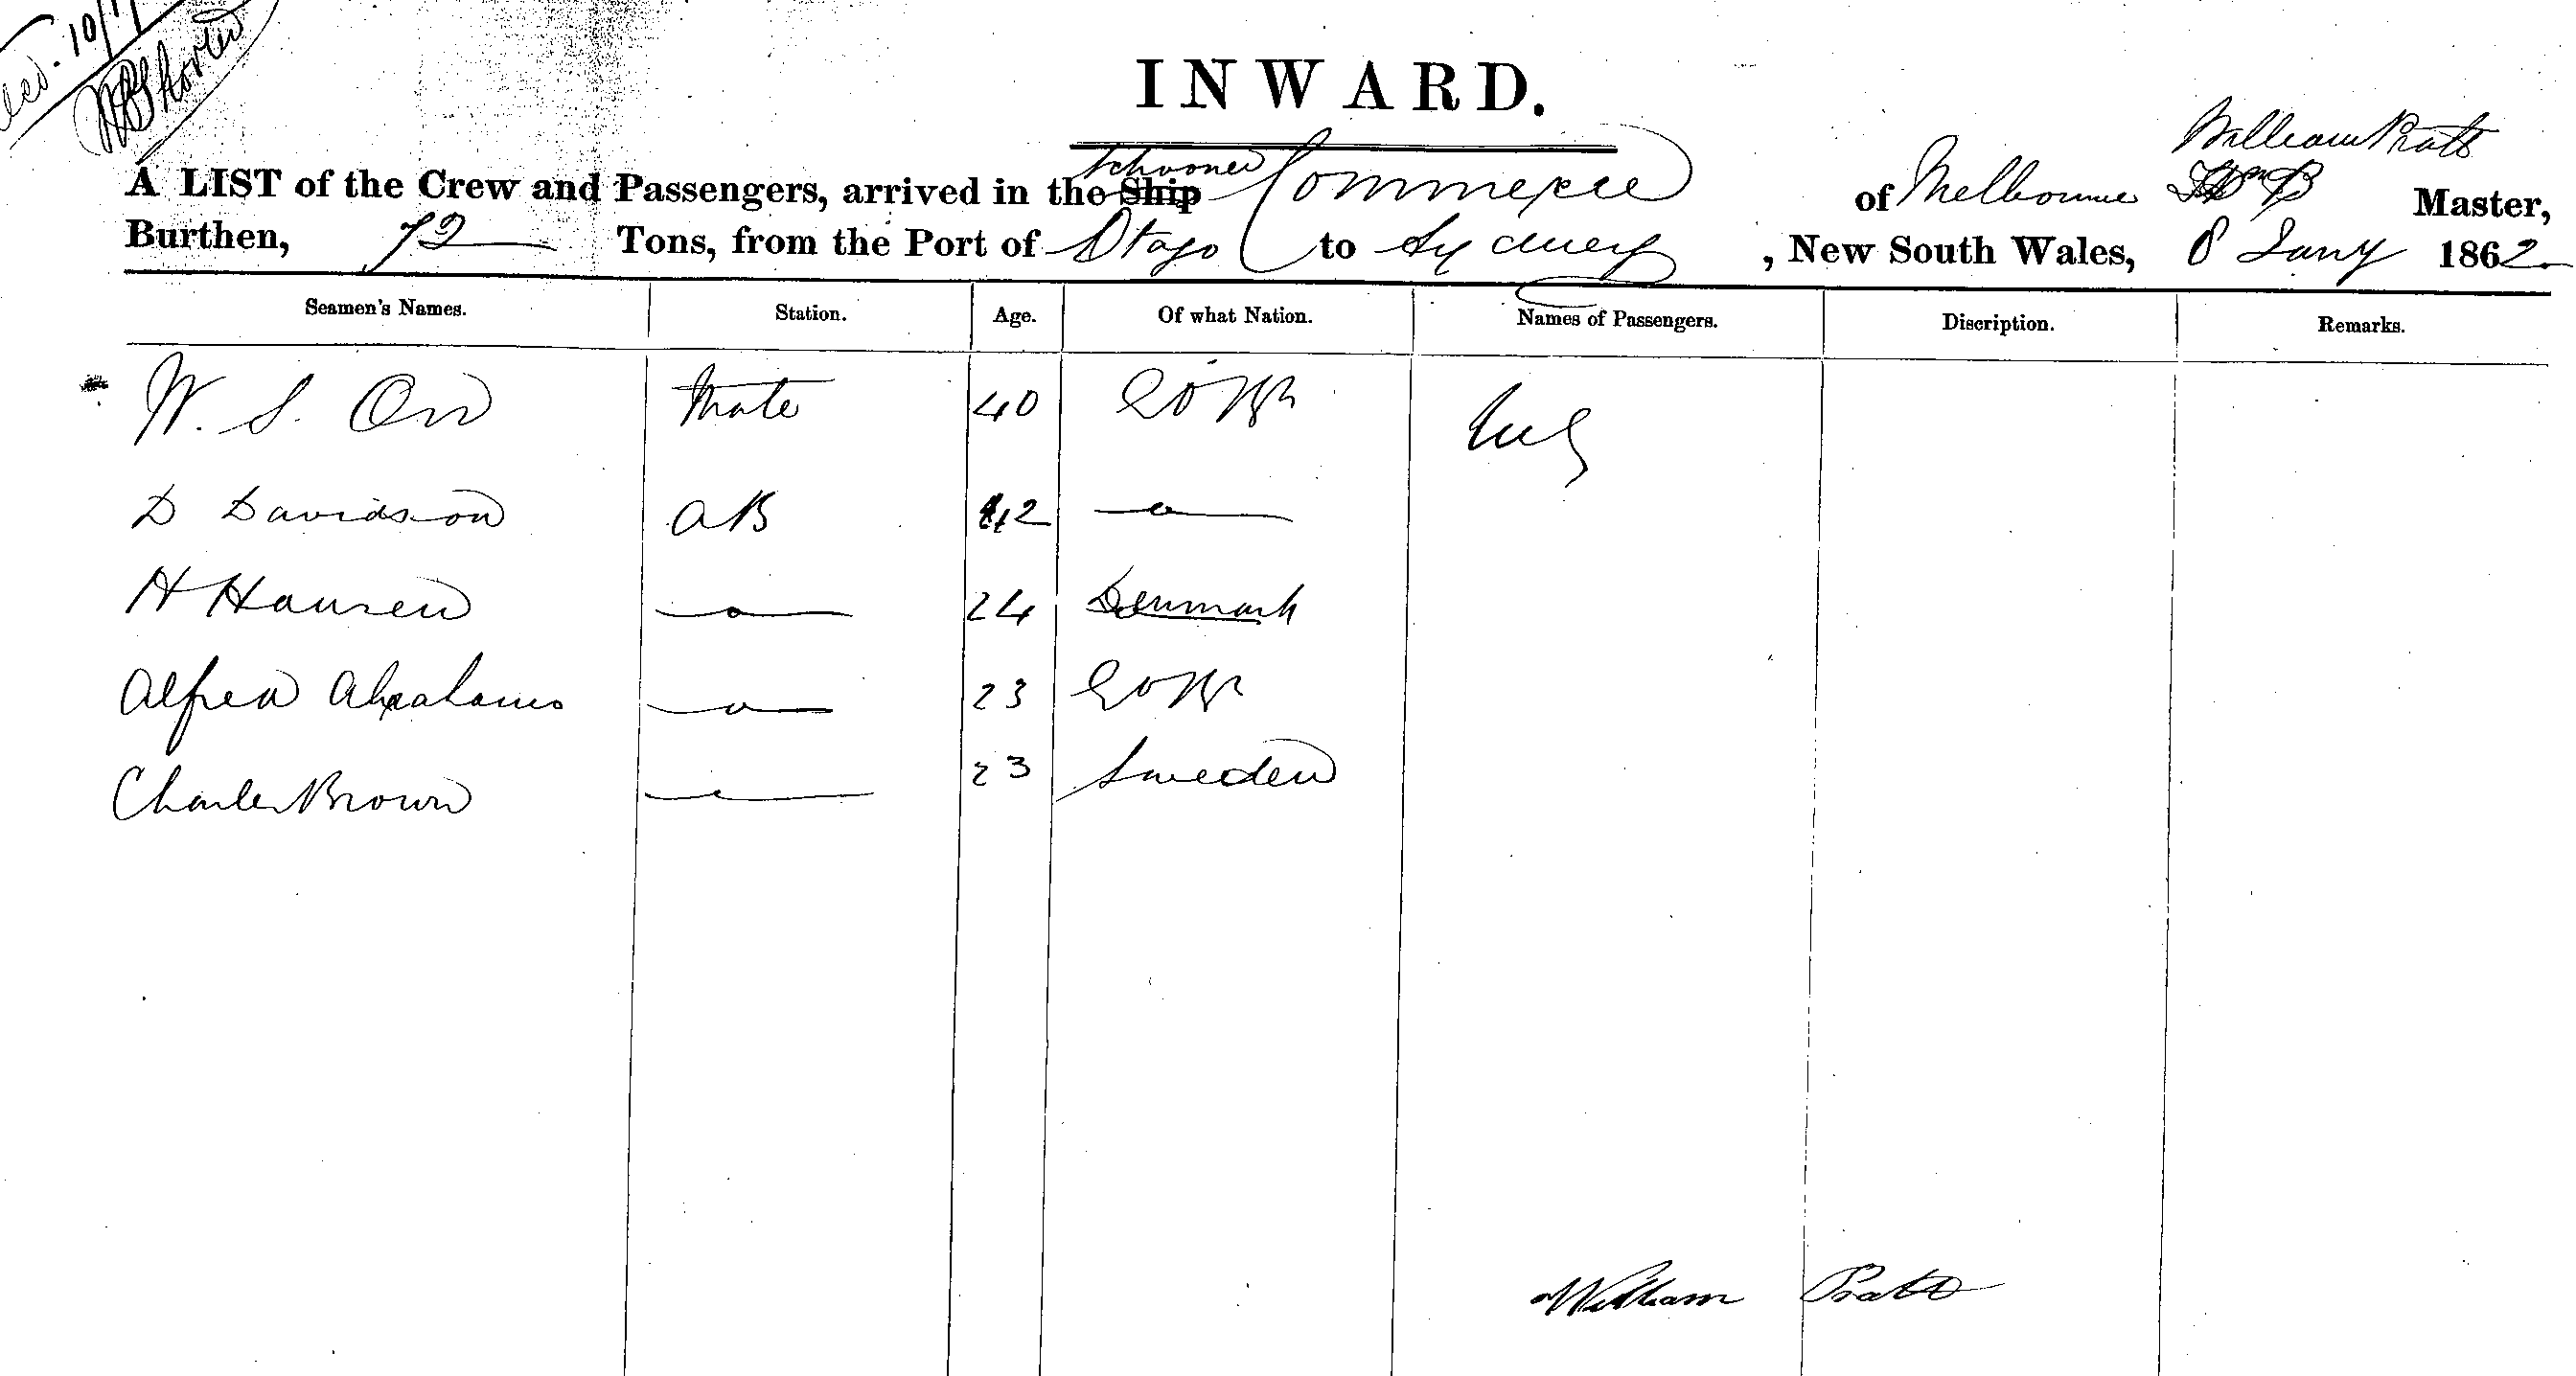 10/1
INWARD.
William Pratt
A LIST of the Crew and Passengers, arrived in the Ship Schooner Commerce of Melbourne Master,
Burthen, 72 Tons, from the Port of Otago to Sydney, New South Wales, 8 Jany 1862
Seamen's Names. Station. Age. Of what Nation. Names of Passengers. Discription. Remarks.
W. S. Orr Mate 40
D Davidson AB 42 — " —
H Hansen — " — 24 Denmark
Alfred Abrahams — " — 23
Charles Brown — " — 23 Sweden
William Pratt